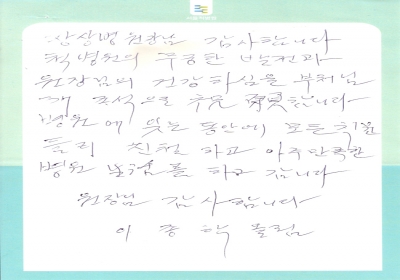 장상병 원장님 감사합니다
척병원의 무궁한 발전과
원장님의 건강하심을 부처님
께 조석으로 축원 하겠습니다
병원에 있는 동안에 모든 직원
들의 친절하고 아주 만족한
병원 생활을 하고 갑니다
원장님 감사합니다
이 종 학 올림